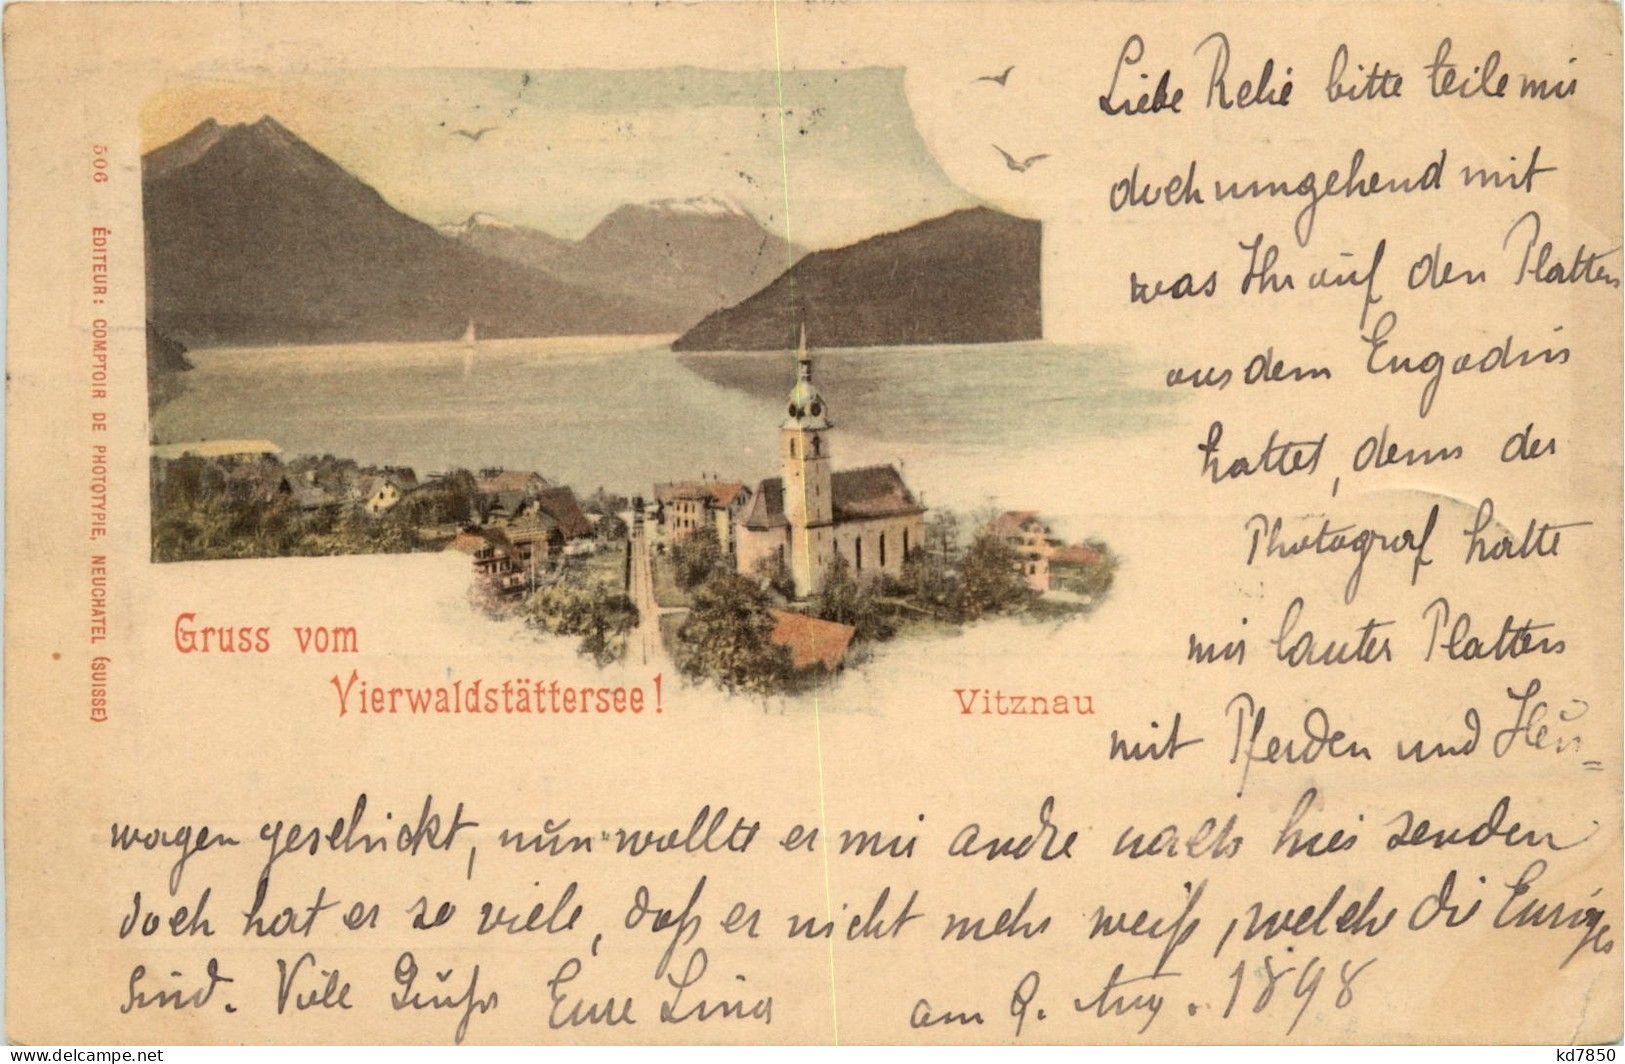 Liebe Relie bitte teile mir
doch umgehend mit
was Ihr auf den Platten
aus dem Engadin
hattet, denn der
Photograf hatte
mir lauter Platten
mit Pferden und Heu=
wagen geschickt, nun wollte er mir andre nach hier senden
doch hat er so viele, daß er nicht mehr weiß, welche die Eurigen
sind. Viele Grüße Eure Lina am 9. Aug. 1898
Gruss vom
Vierwaldstättersee!
Vitznau
506 ÉDITEUR: COMPTOIR DE PHOTOTYPIE, NEUCHATEL (SUISSE)
delcampe.net
kd7850